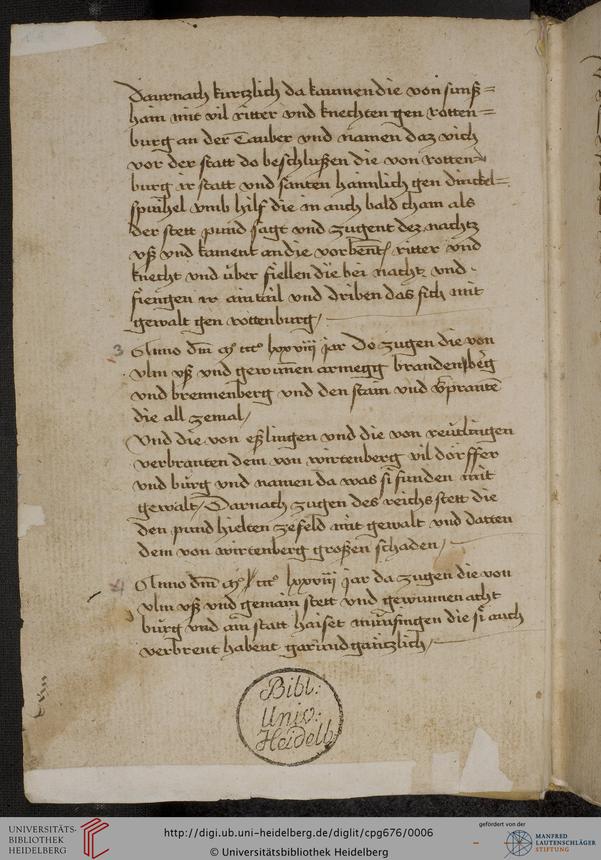 Daurnach kurtzlich da kaumen die von sunß=
hain mit vil ritter vnd knechten gen rotten=
burg an der Tauber vnd namen daz vich
vor der statt do beschlußen die von rotten
burg ir statt vnd santen haimlich gen dinckel=
spuhel vmb hilf die in auch bald cham als
der stett pund sagt vnd zugent dez nachtz
vß vnd kament an die vorbent ritter vnd
knecht vnd über fiellen die bei nacht vnd
fiengen ir ain tail vnd driben das fich mit
gewalt gen rottenburg
3 Anno dm mo ccco lxxviii jar Do zugen die von
vlm vß vnd gewunen armegg brandenberg
vnd brennenberg vnd den stain vnd vprantē
die all zemal
Vnd die von eßlingen vnd die von reutlingen
verbranten dem von wirtenberg vil dörffer
vnd bürg vnd namen da was si funden mit
gewalt Darnach zugen des reichs stett die
den pund hielten ze feld mit gewalt vnd datten
dem von wirtenberg großen schaden
4 Anno dm mo ccco lxxviii jar da zugen die von
vlm vß vnd gemain stett vnd gewunnen acht
bürg vnd ain statt haiset münsingen die si auch
verbrent habent gar vnd gäntzlich
Bibl:
Univ:
Heidelb.
UNIVERSITÄTS-
BIBLIOTHEK
HEIDELBERG
http://digi.ub.uni-heidelberg.de/diglit/cpg676/0006
© Universitätsbibliothek Heidelberg
gefördert von der
MANFRED
LAUTENSCHLÄGER
STIFTUNG